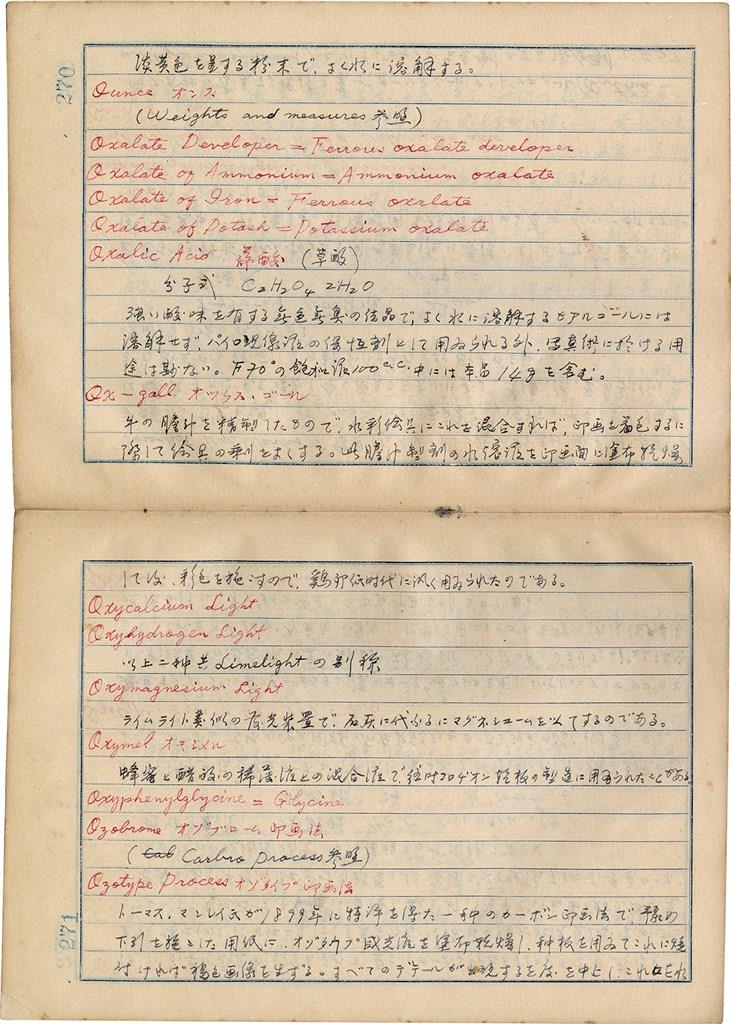 270
淡黄色を呈する粉末で、よく水に溶解する。
Ounce オンス
(Weights and measures 参照)
Oxalate Developer = Ferrous oxalate developer
Oxalate of Ammonium = Ammonium oxalate
Oxalate of Iron = Ferrous oxalate
Oxalate of Potash = Potassium oxalate
Oxalic Acid 蓚酸 (草酸)
分子式 C2H2O4 2H2O
強い酸味を有する無色無臭の結晶で、よく水に溶解するもアルコールには
溶解せず、パイロ現像液の保恒剤として用ゐられる外、写真術に於ける用
途は尠ない。F70°の飽和液100c.c.中には本品14gを含む。
Ox-gall オックス・ゴール
牛の膽汁を精製したもので、水彩絵具にこれを混合すれば、印画を着色するに
際して絵具の乗りをよくする。此膽汁製剤の水溶液を印画面に塗布乾燥
して後、彩色を施すので、鶏卵紙時代に汎く用ゐられたのである。
Oxycalcium Light
Oxyhydrogen Light
以上二種共Limelightの別称
Oxymagnesium Light
ライムライト類似の発光装置で、石灰に代ふるにマグネシュームを以てするのである。
Oxymel オキシメル
蜂蜜と醋酸の稀薄液との混合液で、往時コロヂオン乾板の製造に用ゐられたことがある
Oxyphenylglycine = Glycine
Ozobrome オゾブローム印画法
(Carbro process 参照)
Ozotype Process オゾタイプ印画法
トーマス、マンレイ氏が1899年に特許を得た一種のカーボン印画法で、予め
下引を施した用紙に、オゾタイプ感光液を塗布乾燥し、種板を用ゐてこれに焼
付ければ褐色画像を生ずる。すべてのデテールが出現する度を中止し、これを水
271